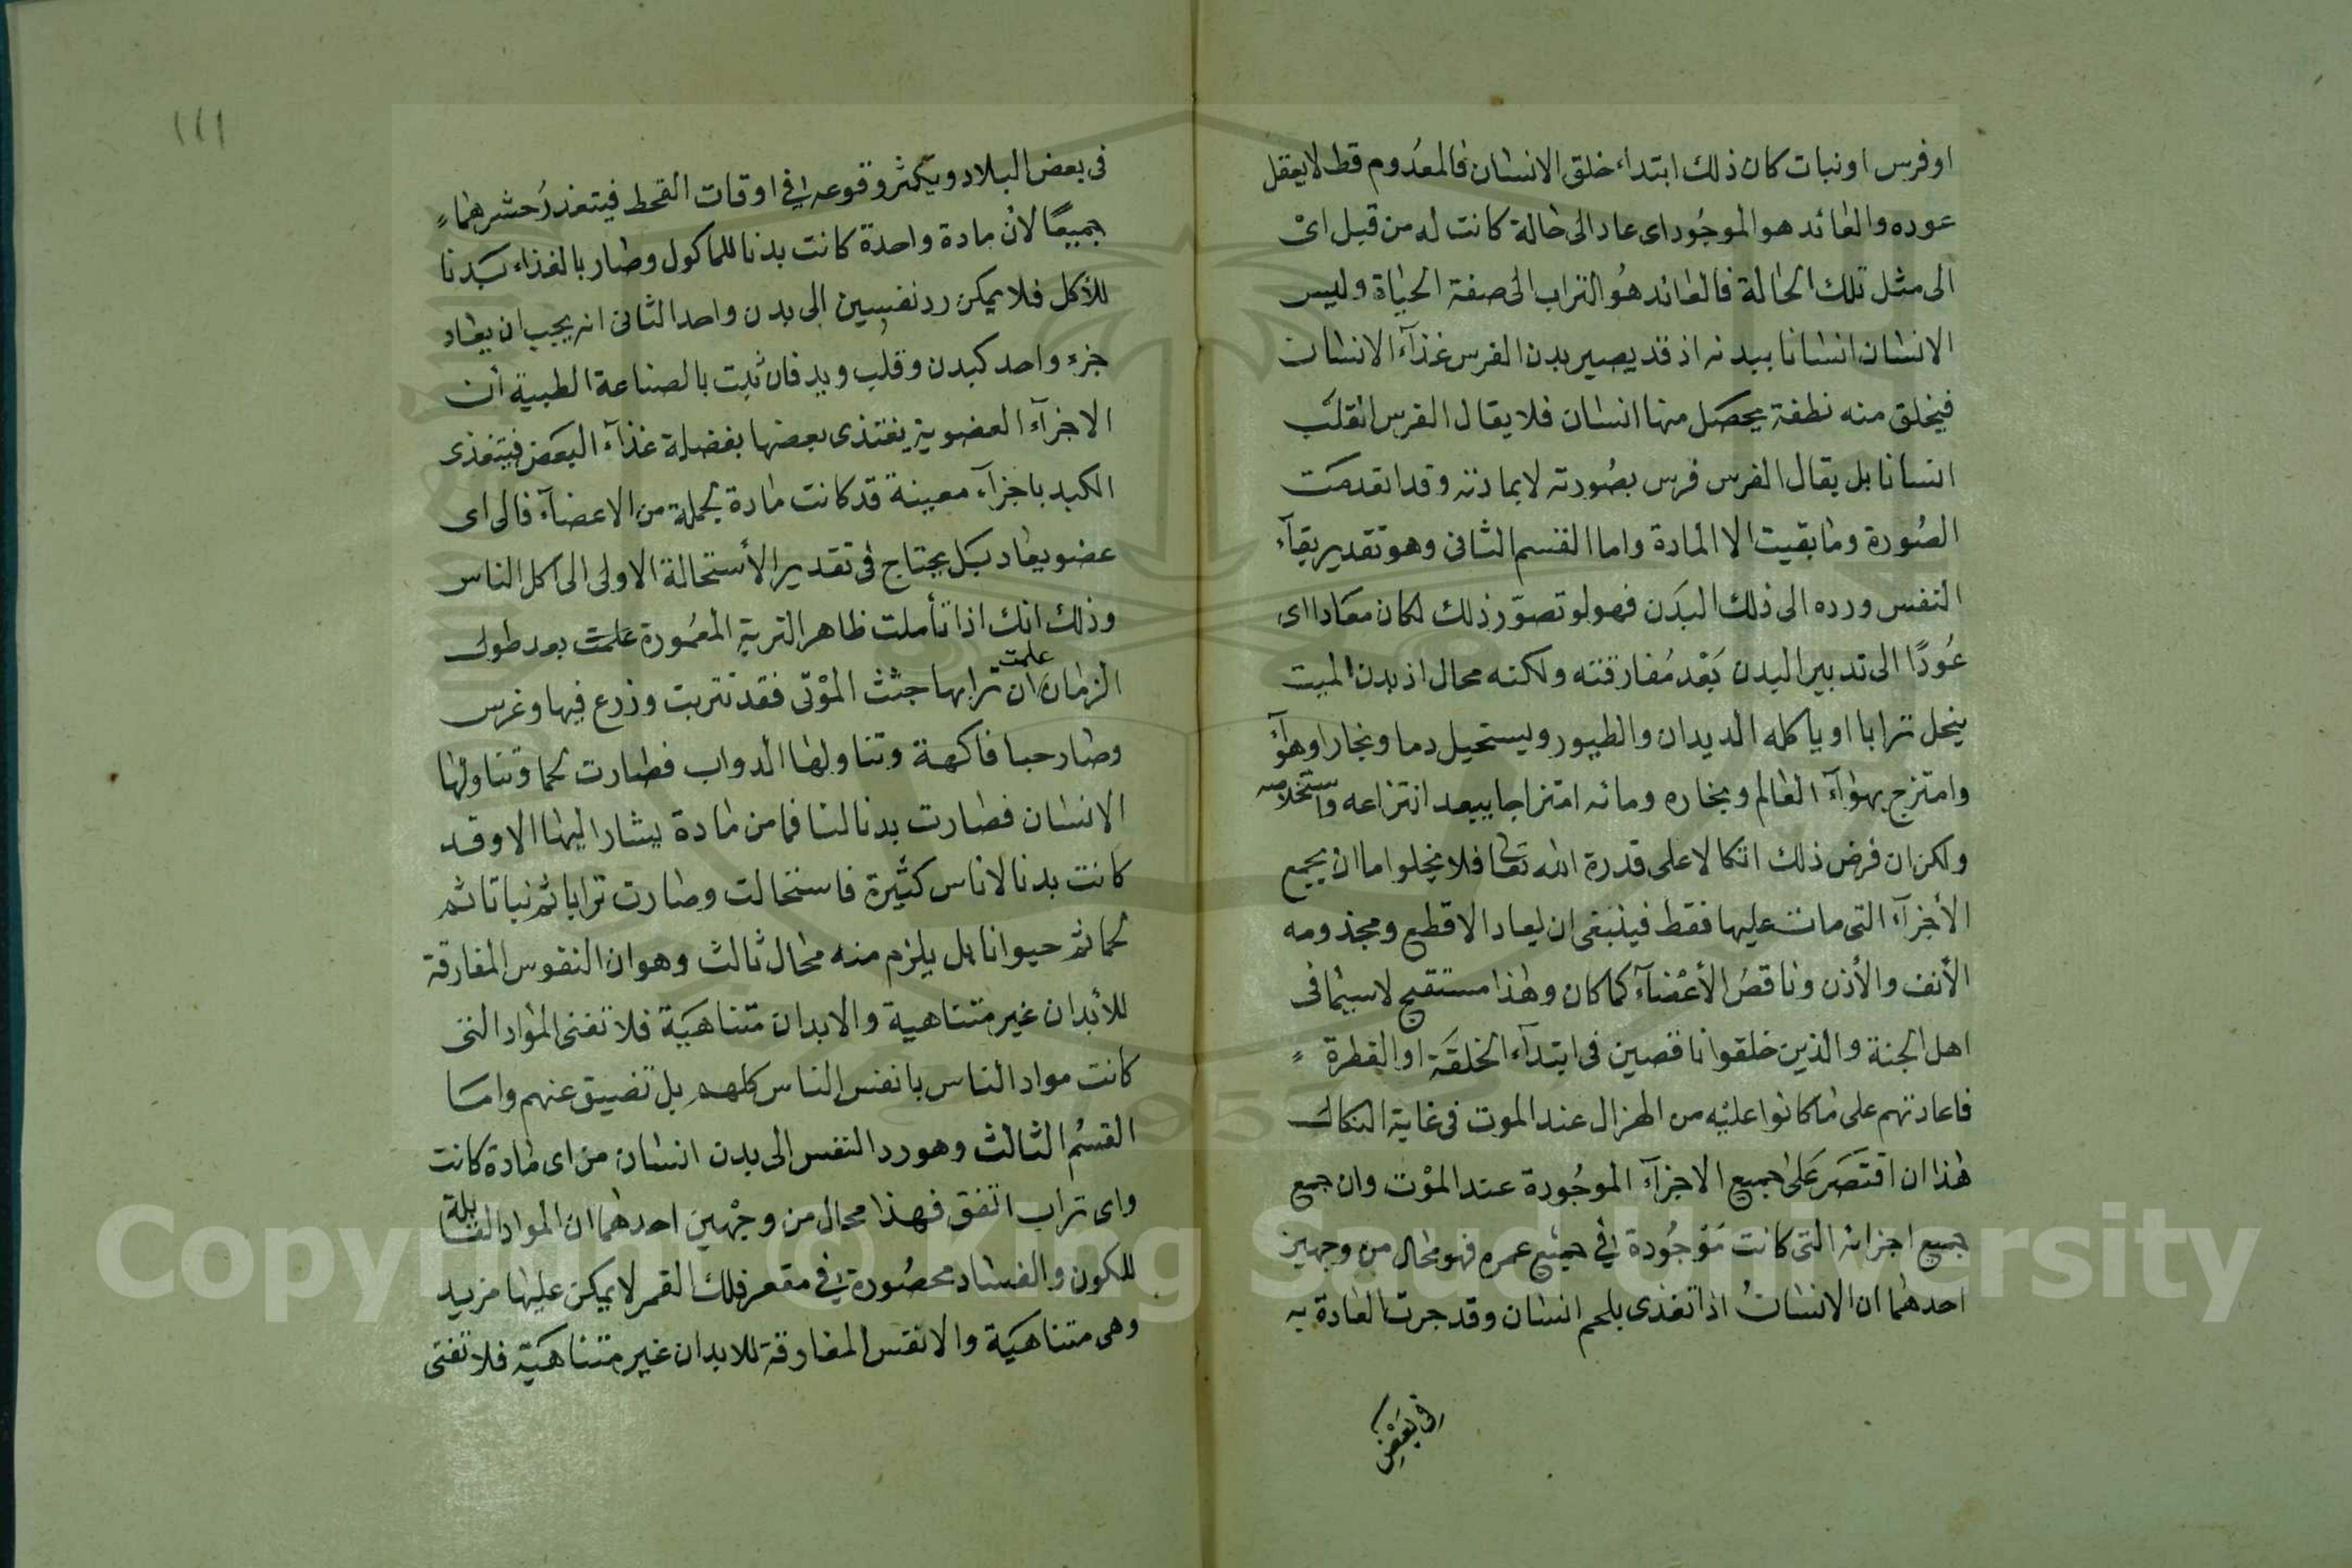 او فرس او نبات كان ذلك ابتداء خلق الانسان فالمعدوم قط لا يعقل
عوده والعائد هو الموجود اى عاد الى حالة كانت له من قبل اىْ
الى مثل تلك الحالة فالعائد هو التراب الى صفة الحياة وليس
الانسان انسانا ببدنه اذ قد يصير بدن الفرس غذآء الانسان
فيخلق منه نطفة يحصل منها انسان فلا يقال الفرس انقلب
انسانا بل يقال الفرس فرس بصورته لا بمادته وقد انعدمت
الصورة وما بقيت الا المادة واما القسم الثانى وهو تقدير بقآء
النفس ورده الى ذلك البدن فهو لو تصوّر ذلك لكان معادا اى
عُودًا الى تدبير البدن بَعْد مُفارقته ولكنه محال اذ بدن الميت
ينحل ترابا او ياكله الديدان والطيور ويستحيل دما وبخارا وهوآءً
وامتزج بهوآء العالم وبخاره ومائه امتزاجا يبعد انتزاعه واستخلاصه
ولكن ان فرض ذلك اتكالا على قدرة الله تعالى فلا يخلوا اما ان يجمع
الأجزآء التى مات عليها فقط فينبغى ان يعاد الاقطع ومجذومه
الأنف والأذن وناقصُ الأعْضآء كما كان وهذا مستقبح لا سيما فى
اهل الجنة والذين خلقوا ناقصين فى ابتدآء الخلقَة او الفطرة
فاعادتهم على ما كانوا عليْه من الهزال عند الموت فى غاية النكال
هذا ان اقتصَر عَلى جميع الاجزآء الموجُودة عند الموْت وان جمع
جميع اجزائه التى كانت مَوْجُودة فى جميع عمره فهو محال من وجهين
احدهما ان الانسانُ اذا تغذى بلحم انسان وقد جرت العادة به
فى بَعْضِ
١١١
فى بعض البلاد ويكثر وقوعه فى اوقات القحط فيتعذرُ حشرهما
جميعًا لأن مادة واحدة كانت بدنا للماكول وصار بالغذاء بَدنا
للأكل فلا يمكن رد نفسين الى بدن واحد الثانى انه يجب ان يعاد
جزء واحد كبدن وقلب ويد فان ثبت بالصناعة الطبية أن
الاجزآء العضوية يغتذى بعضها بفضلة غذآء البعَض فيتغذى
الكبد باجزآء معينة قد كانت مادة لجملة من الاعضآء فالى اى
عضو يعاد بَل يحتاج فى تقدير الأستحالة الاولى الى اكل الناس
وذلك انك اذا تأملت ظاهر التربة المعمُورة علمت بعد طول
علمت
الزمان ان ترابها جثث الموْتى فقد تتربت وزرع فيها وغرس
وصار حبا فاكهة وتناولها الدواب فصارت لحما وتناولها
الانسان فصارت بدنا لنا فما من مادة يشار اليها الا وقد
كانت بدنا لاناس كثيرة فاستحالت وصارت ترابا ثم نباتا ثم
لحما ثم حيوانا بل يلزم منه محال ثالث وهو ان النفوس المفارقة
للأبدان غير متناهية والابدان متناهيَة فلا تفنى المواد التى
كانت مواد الناس بانفس الناس كلهم بل تضيق عنهم واما
القسْم الثالث وهو رد النفس الى بدن انسان من اى مادة كانت
واى تراب اتفق فهذا محال من وجْهين احدهما ان المواد القابلة
للكون والفساد محصُورة فى مقعر فلك القمر لا يمكن عليها مزيد
وهى متناهيَة والانفس المفارقة للابدان غير متناهيَة فلا تفنى
Copyright © King Saud University
1957